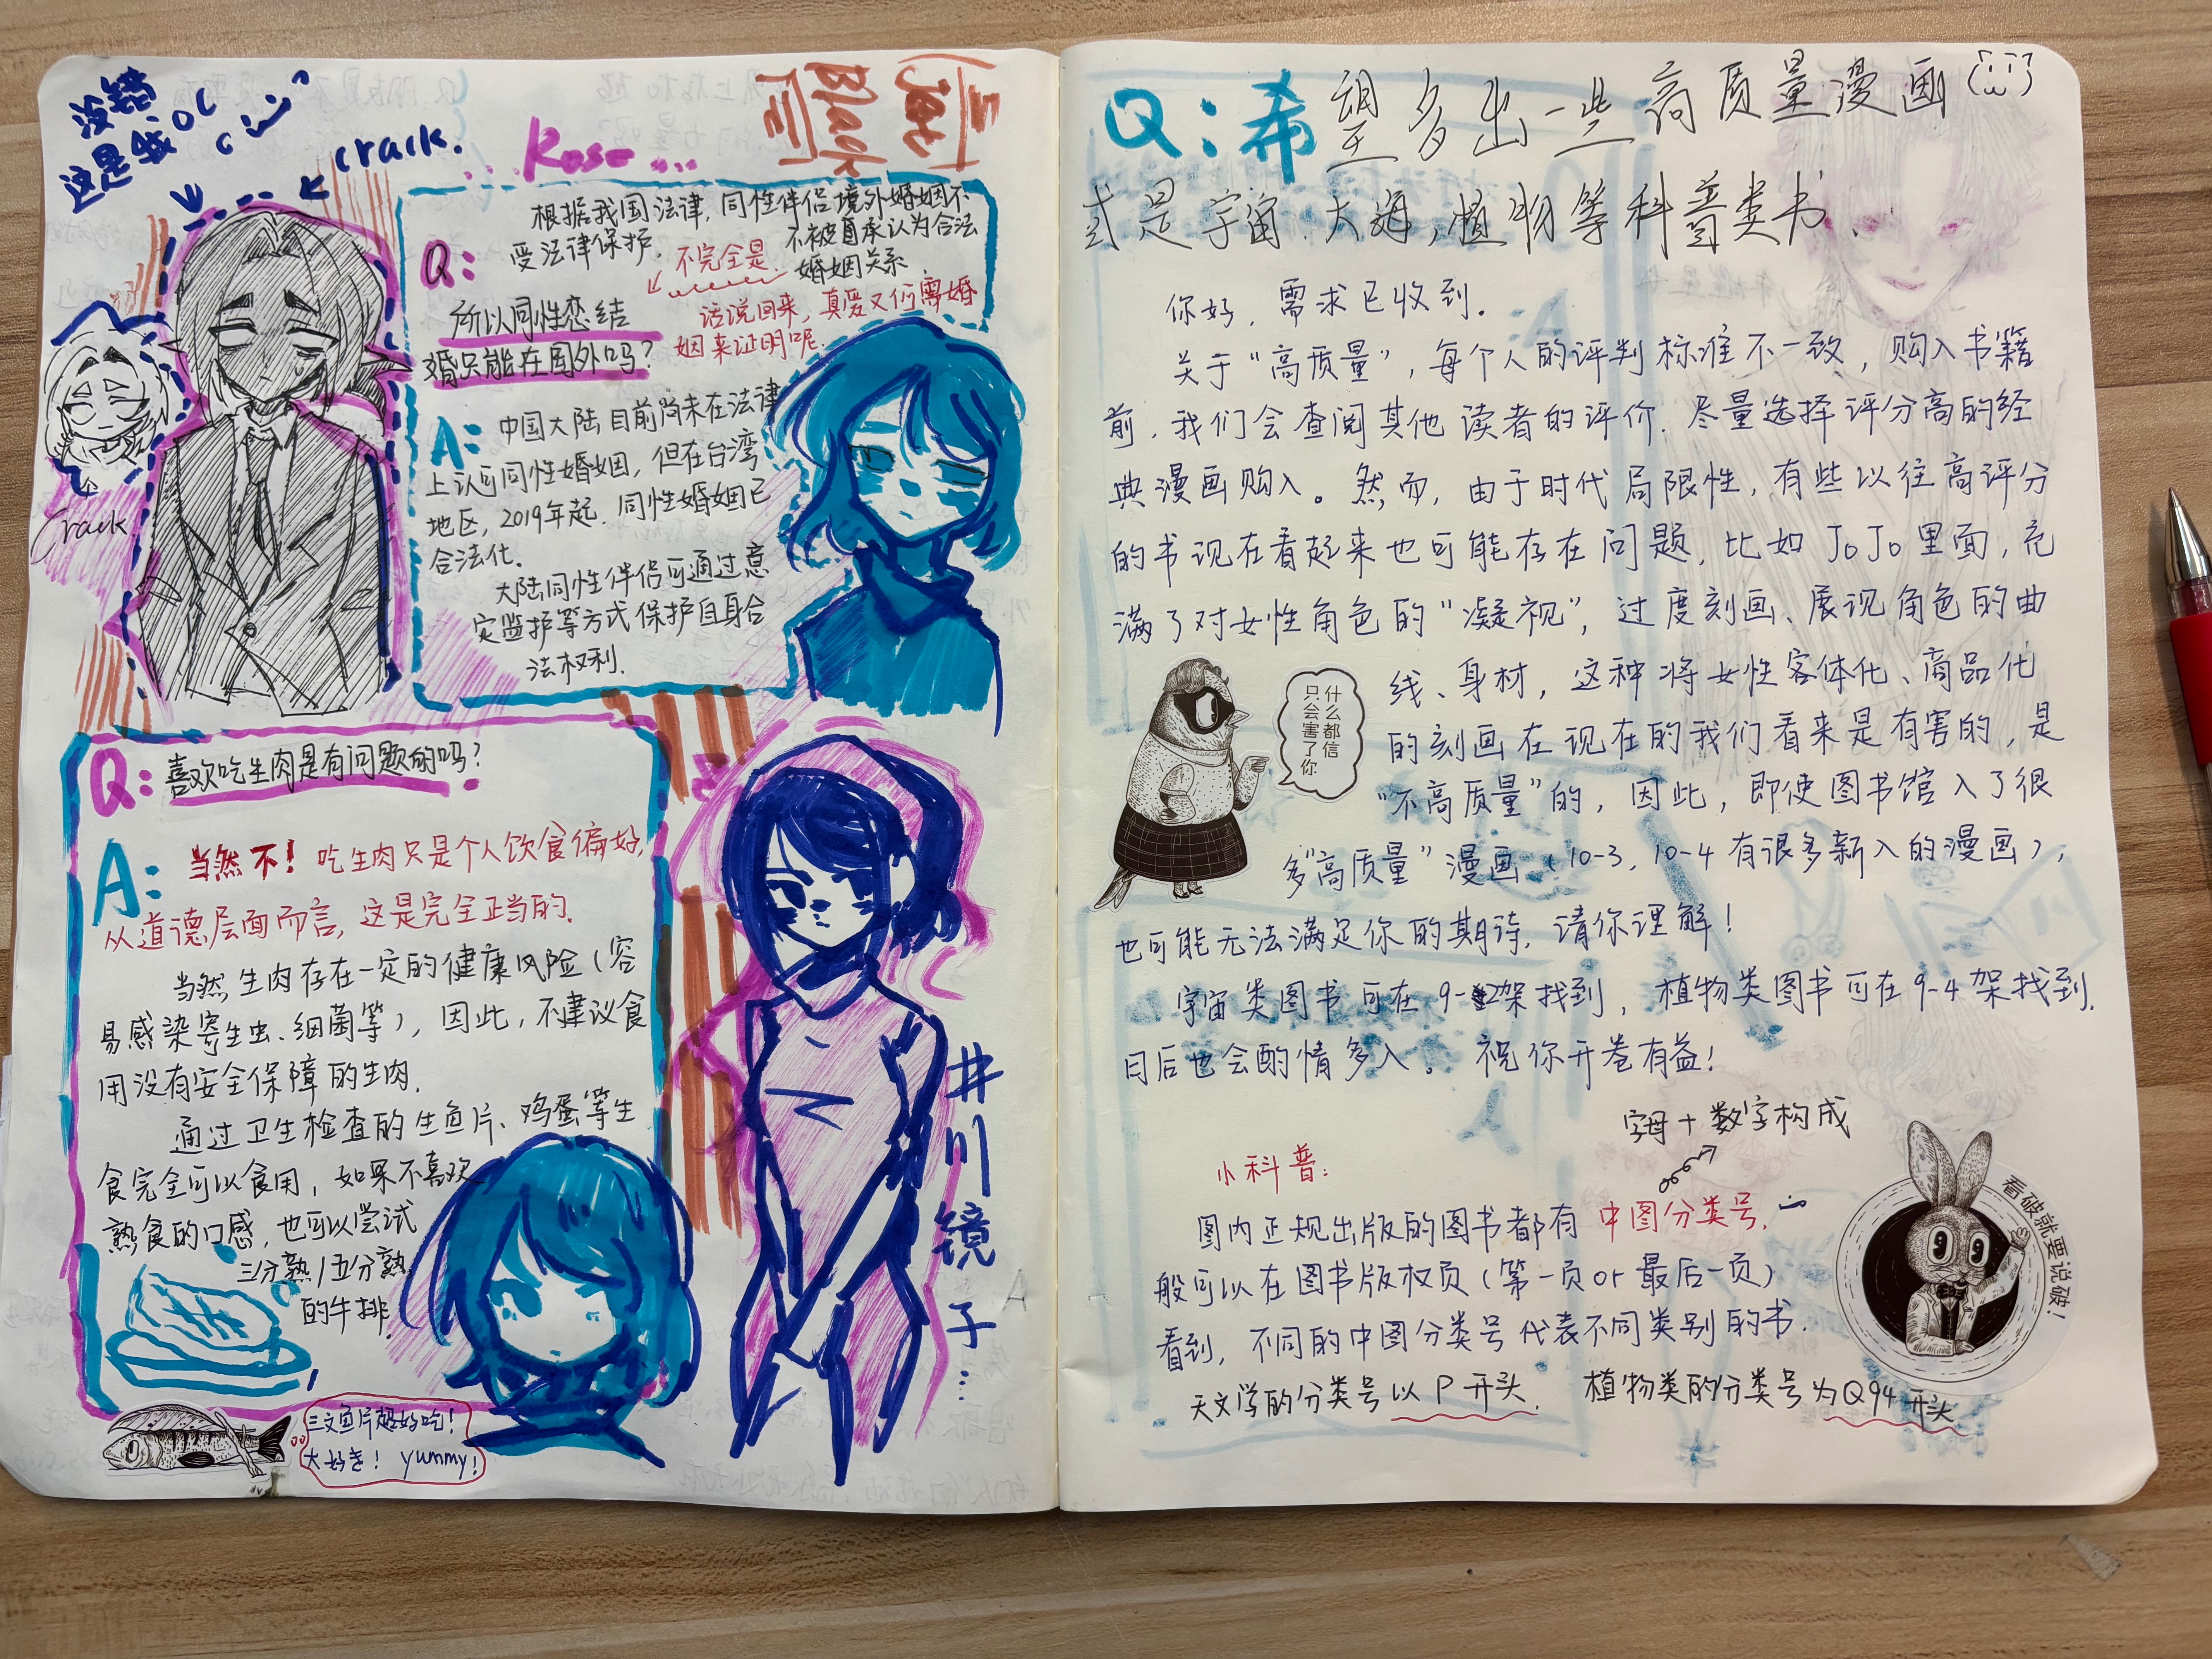 没错
这是我
crack.
Rose...
Black
Crack
根据我国法律，同性伴侣境外婚姻不
受法律保护.
不被承认为合法
婚姻关系
不完全是.
Q:
所以同性恋结
婚只能在国外吗？
话说回来，真爱又何需婚
姻来证明呢.
A:
中国大陆目前尚未在法律
上认可同性婚姻，但在台湾
地区，2019年起，同性婚姻已
合法化.
大陆同性伴侣可通过意
定监护等方式保护自身合
法权利.
Q:
喜欢吃生肉是有问题的吗？
A:
当然不！吃生肉只是个人饮食偏好，
从道德层面而言，这是完全正当的.
当然生肉存在一定的健康风险（容
易感染寄生虫、细菌等），因此，不建议食
用没有安全保障的生肉.
通过卫生检查的生鱼片、鸡蛋等生
食完全可以食用，如果不喜欢
熟食的口感，也可以尝试
三分熟/五分熟
的牛排.
三文鱼片超好吃！
大好き！ yummy！
井川镜子...
Q:希望多出一些高质量漫画
式是宇宙、大海，植物等科普类书.
你好，需求已收到.
关于“高质量”，每个人的评判标准不一致，购入书籍
前，我们会查阅其他读者的评价.尽量选择评分高的经
典漫画购入。然而，由于时代局限性，有些以往高评分
的书现在看起来也可能存在问题，比如JoJo里面，充
满了对女性角色的“凝视”，过度刻画、展现角色的曲
线、身材，这种将女性客体化、商品化
的刻画在现在的我们看来是有害的，是
“不高质量”的，因此，即使图书馆入了很
多“高质量”漫画（10-3，10-4有很多新入的漫画），
也可能无法满足你的期待，请你理解！
宇宙类图书可在9-2架找到，植物类图书可在9-4架找到.
日后也会酌情多入。祝你开卷有益！
什么都信
只会害了你
字母+数字构成
小科普：
图内正规出版的图书都有中图分类号，一
般可以在图书版权页（第一页or最后一页）
看到，不同的中图分类号代表不同类别的书.
天文学的分类号以P开头. 植物类的分类号为Q94开头
看破就要说破！